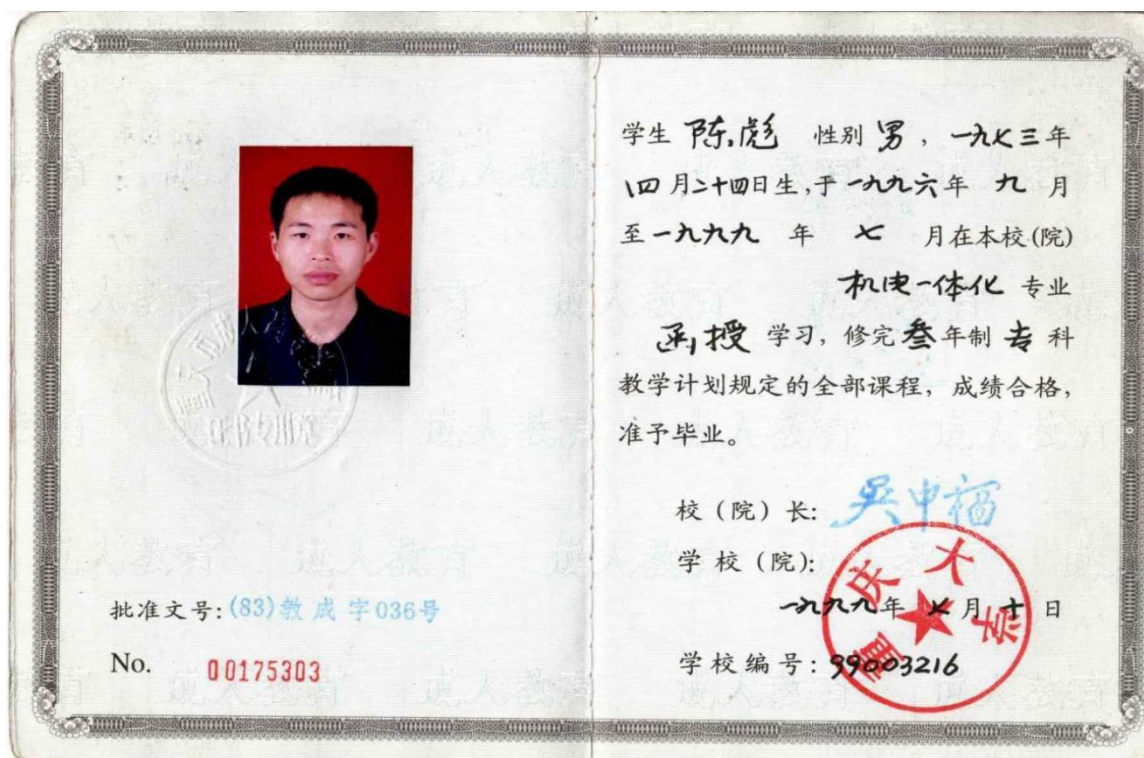 批准文号:(83)教成字036号
No. 00175303
证书专用章
学生 陈彪 性别 男 ,一九七三年
四月二十四日生,于一九九六年 九 月
至一九九九 年 七 月在本校(院)
机电一体化 专业
函授 学习,修完叁年制 专 科
教学计划规定的全部课程,成绩合格,
准予毕业。
校(院)长: 吴中福
学校(院):
重庆大学
一九九九年 七 月 十 日
学校编号:99003216
成人教育